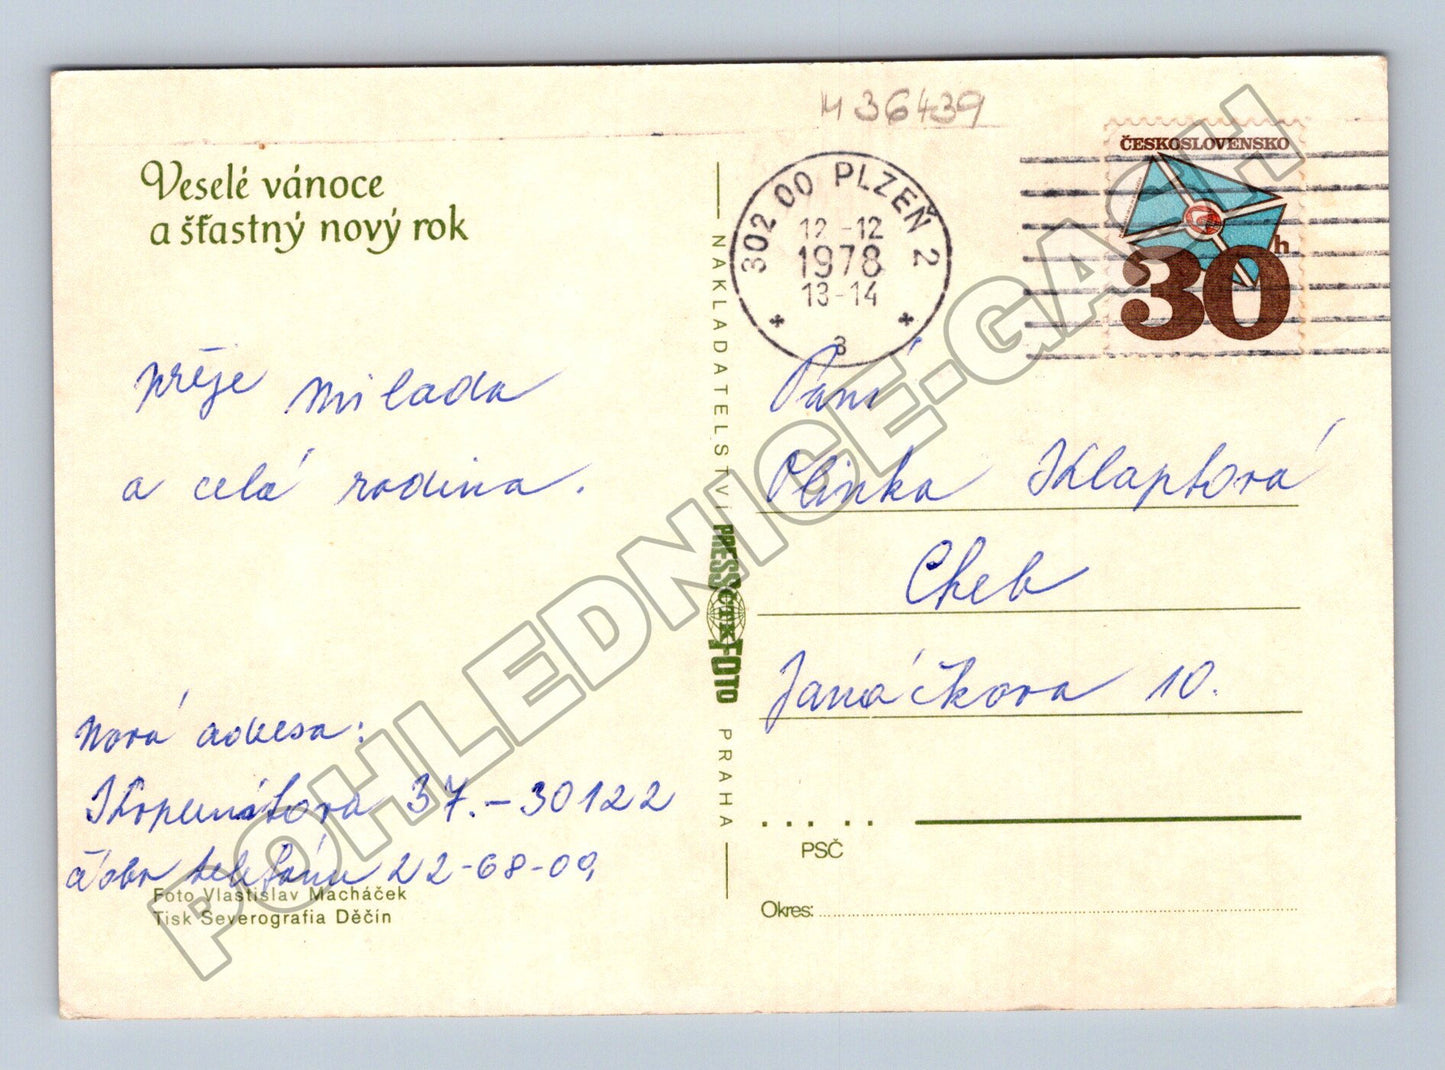 M 36439
ČESKOSLOVENSKO
30 h
302 00 PLZEŇ 2
12-12
1978
13-14
3
Veselé vánoce
a šťastný nový rok
přeje Milada
a celá rodina.
Nová adresa:
37.-30122
číslo telefónu 22-68-09,
Foto Vlastislav Macháček
Tisk Severografia Děčín
NAKLADATELSTVÍ PRESSFOTO PRAHA
ČTK
Paní
Olinka Klaptová
Cheb
Janáčkova 10.
PSČ
Okres:
POHLEDNICE-GASH